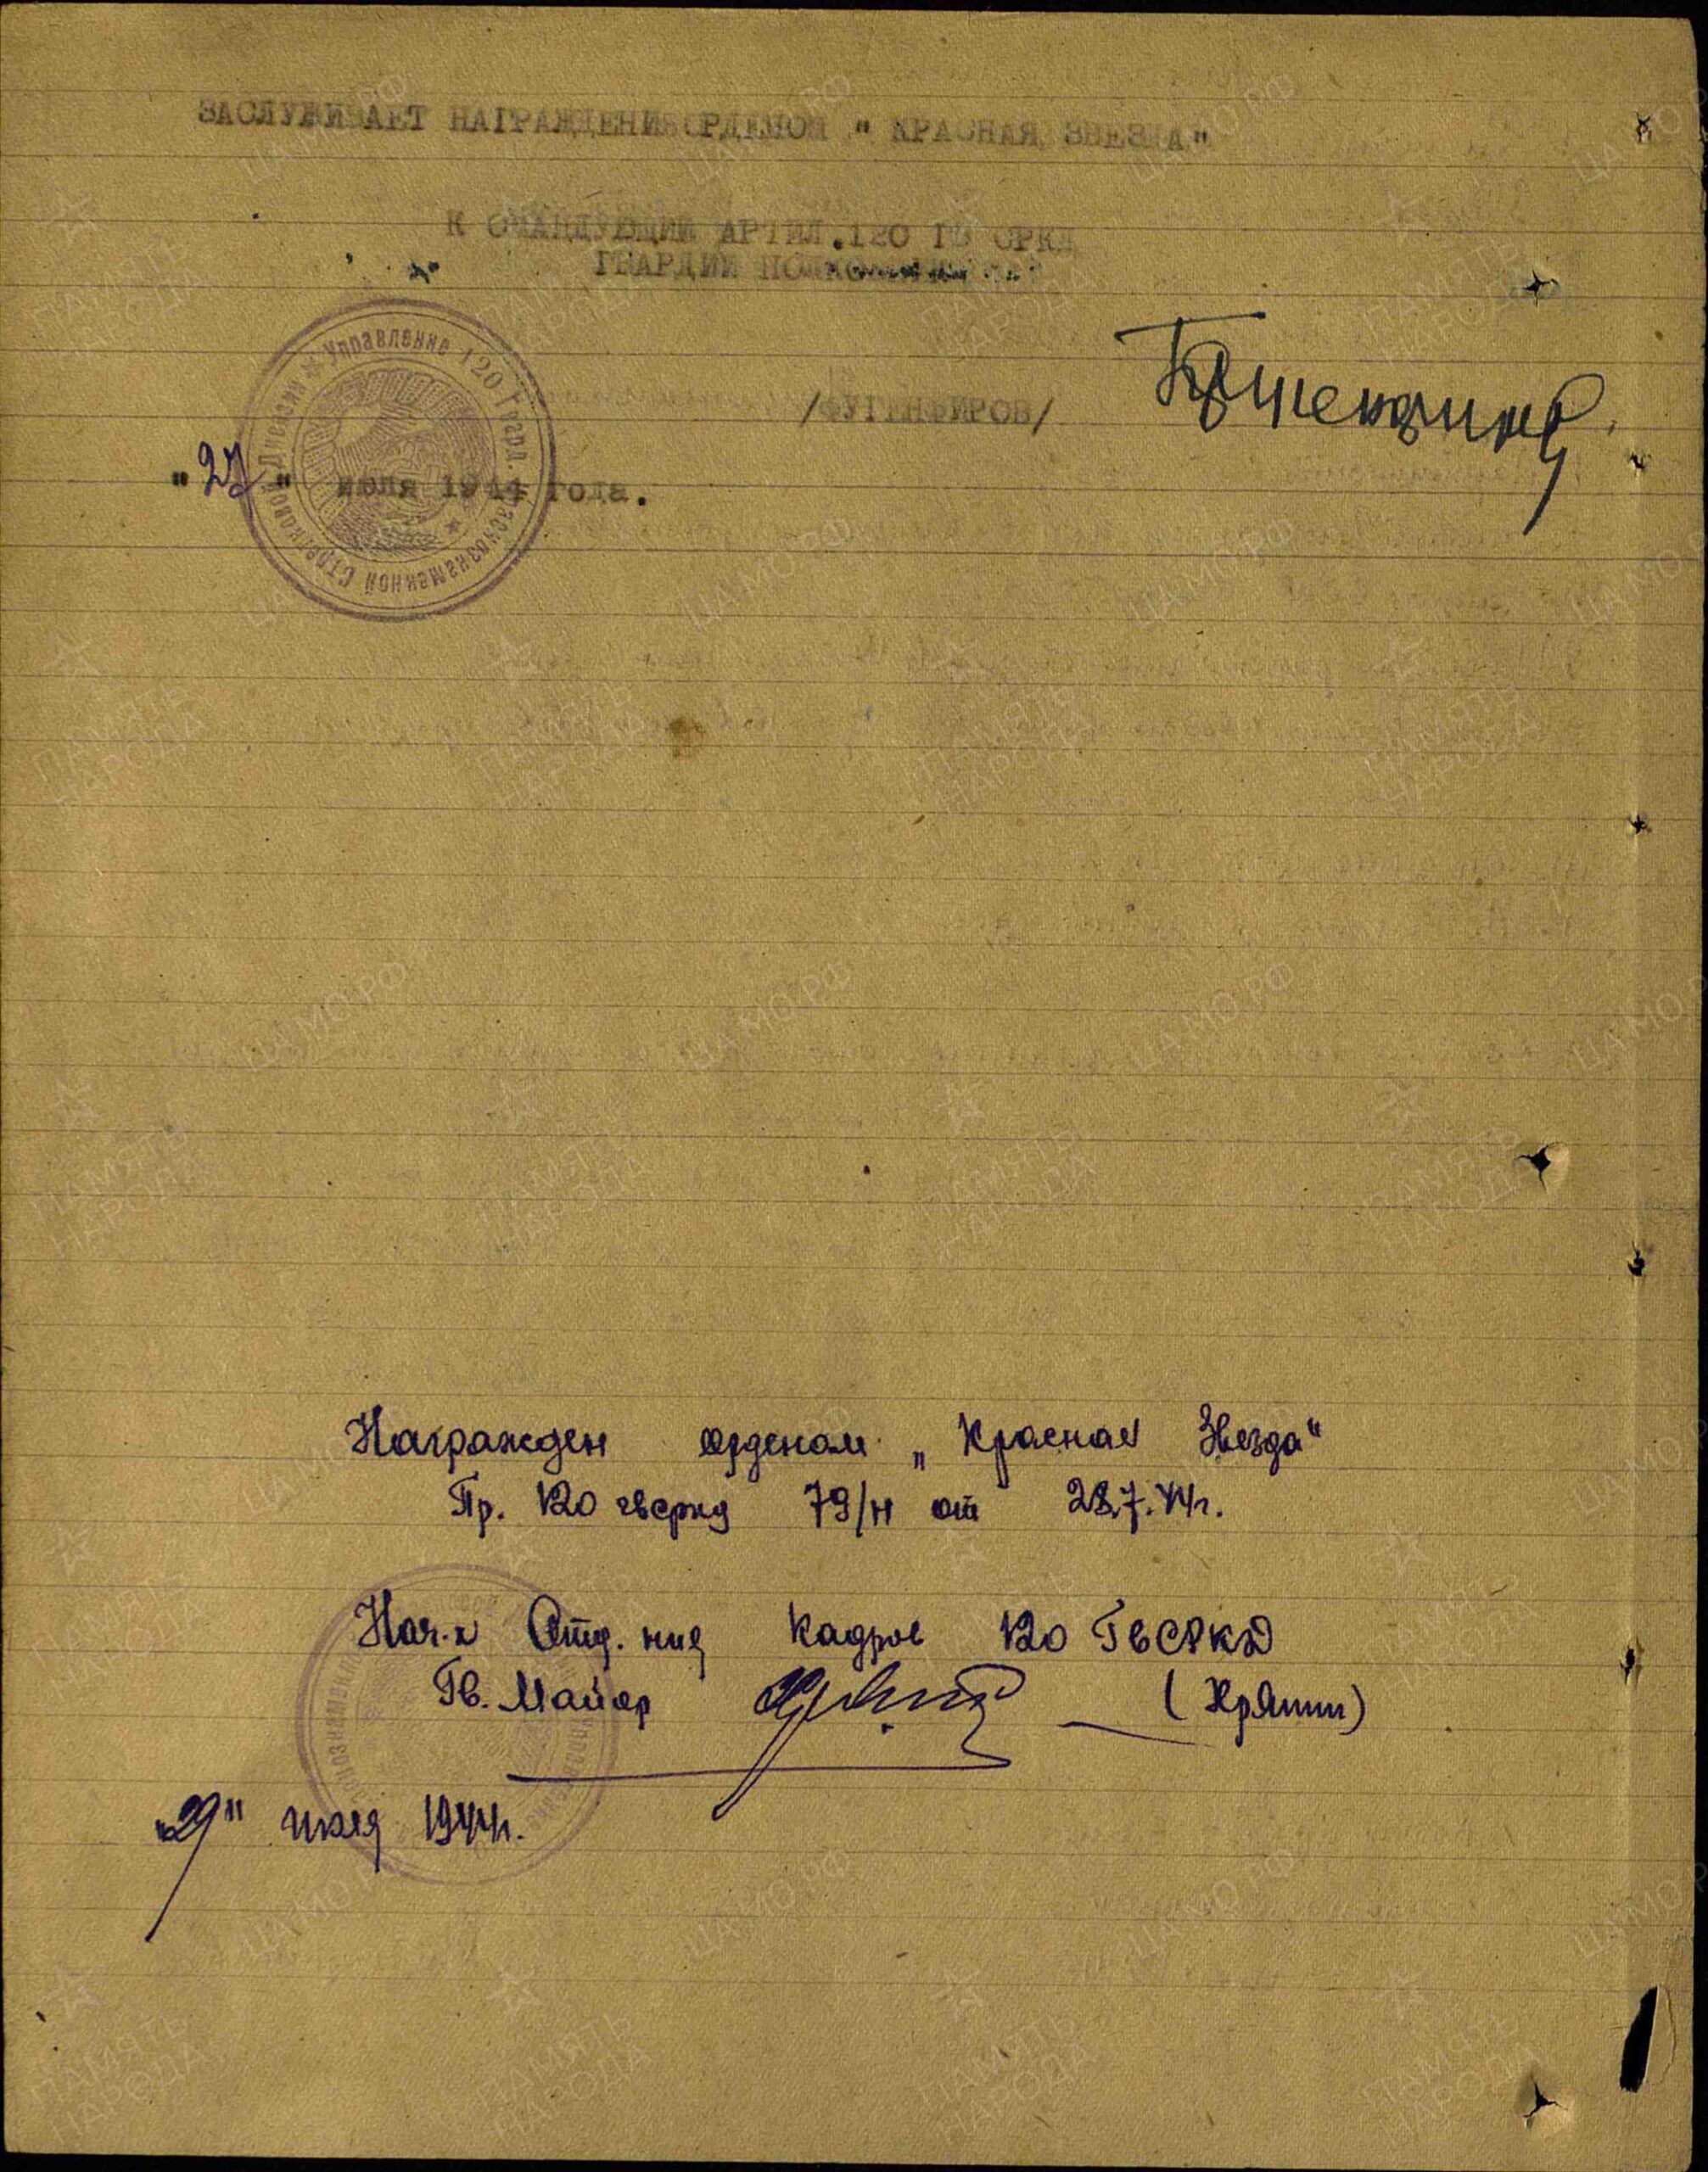 ЗАСЛУЖИВАЕТ НАГРАЖДЕНИЯ ОРДЕНОМ " КРАСНАЯ ЗВЕЗДА"
К ОМАНДУЮЩИЙ АРТИЛ.120 ГВ СРКД
ГВАРДИИ
/ФУГЕНФИРОВ/
"27" июля 1944 года.
Управление 120 Гвард. Краснознаменной Стрелковой Дивизии
Награжден орденом „Красная Звезда"
Пр. 120 гвсркд 79/н от 28.7.44г.
Нач-к Отд.ния Кадров 120 ГвСРКД
Гв. Майор (Хряпин)
„29" июля 1944г.
ПАМЯТЬ НАРОДА
ЦА МО РФ